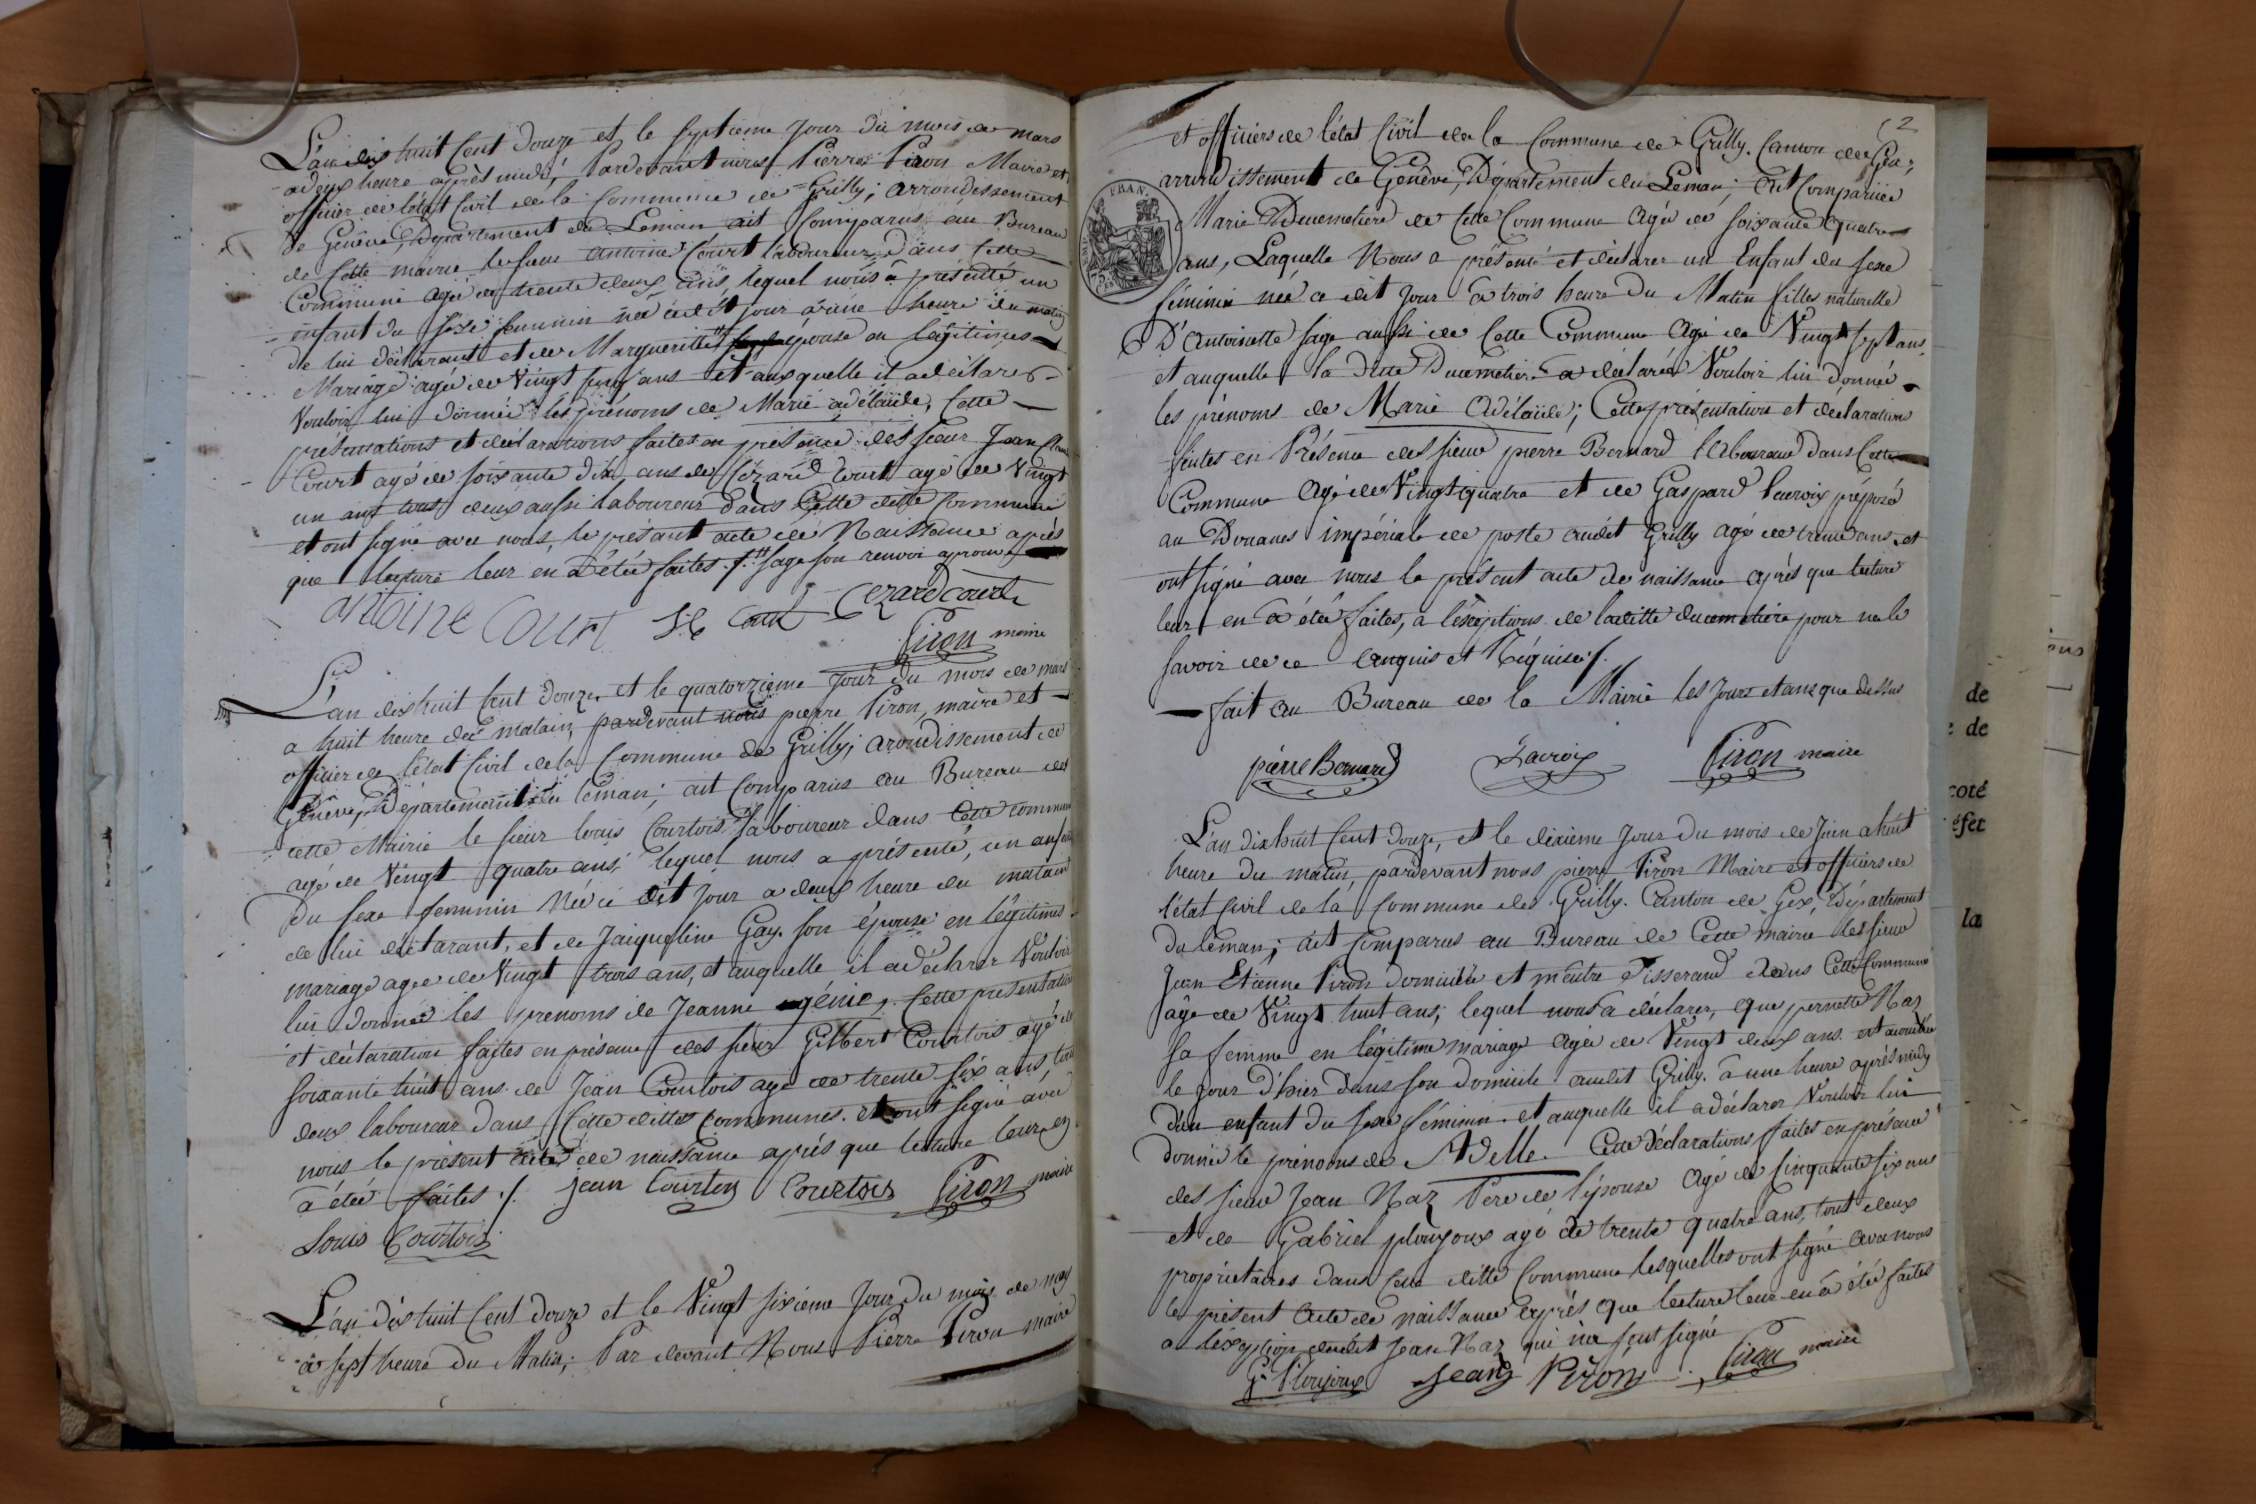 L'an dix huit Cent Douze et le septieme Jour du mois de mars
a deux heure après midi, Pardevant nous Pierre Piron Maire et
officier de l'état Civil de la Commune de Grilly; arrondissement
de Genève, Département du Leman ait Comparus au Bureau
de Cette mairie le sieur antoine Court laboureur dans Cette
Commune agé de trente deux ans, lequel nous a présenté un
enfant du sexe feminin né ce dit jour a une heure du matin
de lui déclarant et de Margueritte # épouse en légitimes
Mariage agée de Vingt cinq ans et auquelle il a déclarer
Vouloir lui donnée les prénoms de Marie adélaïde, Cette
présentations et déclarations faites en présence des sieur Jean
Court agé de soixante dix ans de Cézard Court agé de Vingt
un ans tous deux aussi laboureur dans Cette ditte Commune
et ont signé avec nous, le présant acte de Naissance après
que lecture leur en a étée faites ./. # sage son renvoi aprouvé
antoine Court J C Court Cezard court
Piron maire
L'an dix huit Cent Douze, et le quatorzieme Jour du mois de mars
a huit heure du matain, pardevant nous pierre Piron, maire et
officier de l'état Civil de la Commune de Grilly; arondissement de
Genêve, Département du Leman; ait Comparus au Bureau de
cette Mairie le sieur louis Courtois laboureur dans Cette commune
agé de Vingt quatre ans, lequel nous a présenté, un enfant
du sexe feminin Née ce dit Jour a deux heure du matain
de lui déclarant, et de Jaiqueline Gay son épouse en légitimes
mariage agée de Vingt trois ans, et auquelle il a déclarer Vouloir
lui donnée les prenoms de Jeanne ugénie, Cette présentation
et déclaration faites en présence des sieur Gilbert Courtois agé de
soixante huit ans de Jean Courtois agé de trente six ans, tous
deux laboureur dans Cette ditte communes. et ont signé avec
nous le présent acte de naissance après que lecture leur en
a étée faites ./. Jean Courtois Courtois Piron maire
Louis Courtois
L'an dix huit Cent Douze et le Vingt sixieme Jour du mois de may
à sept heure du Matin; Par devant Nous Pierre Piron maire
2
et officiers de l'état Civil de la Commune de Grilly. Canton de Gex,
arrondissement de Genêve, Département du Leman; ait Comparuée
FRAN.
Marie Ducemetiere de Cette Commune agée de soixante quatre
ans, Laquelle Nous a présenté et déclarer un Enfant du sexe
féminin née ce dit Jour à trois heure du Matin filles naturelle
D'Antoinette sage aussi de Cette Commune agé de Vingt sept ans
et auquelle la ditte Ducemetiere a déclarée Vouloir lui donnée
les prénoms de Marie Adélaïde; Cette présentation et déclarations
faites en Présence des sieur pierre Bernard laboureur dans Cette
Commune Agé de Vingt quatre et de Gaspard lacroix préposé
au Douanes impériale de poste audit Grilly agé de trente ans, et
ont signé avec nous le présent acte de naissance après que lecture
leur en a étée faites, a l'éxeptions de laditte ducemetiere pour ne le
savoir de ce enquis et Réquise ./.
fait au Bureau de la Mairie les Jour et ans que dessus
pierre Bernard Lacroix Piron maire
L'an dix huit Cent Douze, et le dixième Jour du mois de Juin a huit
heure du matin, pardevant nous pierre Piron Maire et officiers de
l'état Civil de la Commune de Grilly. Canton de Gex, Département
du Leman; ait Comparus au Bureau de Cette mairie le sieur
Jean Etienne Piron domicilié et maitre Tisserand dans Cette Commune
âgé de Vingt huit ans; lequel nous a déclarer, que pernette Naz
sa femme en légitime mariage agée de Vingt deux ans est acouchée
le jour d'hier dans son domicile audit Grilly. à une heure après midy
d'un enfant du sexe féminin. et auquelle il a déclarer Vouloir lui
donnée le prénoms de Adelle. Cette déclarations faites en présence
des sieur Jean Naz Pere de l'épouse agé de Cinquante six ans
et de Gabriel ploujoux agé de trente quatre ans, tous deux
propriétaires dans Cette ditte Commune lesquelles ont signé avec nous
le présent acte de naissance après que lecture leur en a étée faites
a l'éxeption dudit Jean Naz qui n'a sçut signé
G. Ploujoux Jean Piron Piron maire
de
de
coté
éfet
la